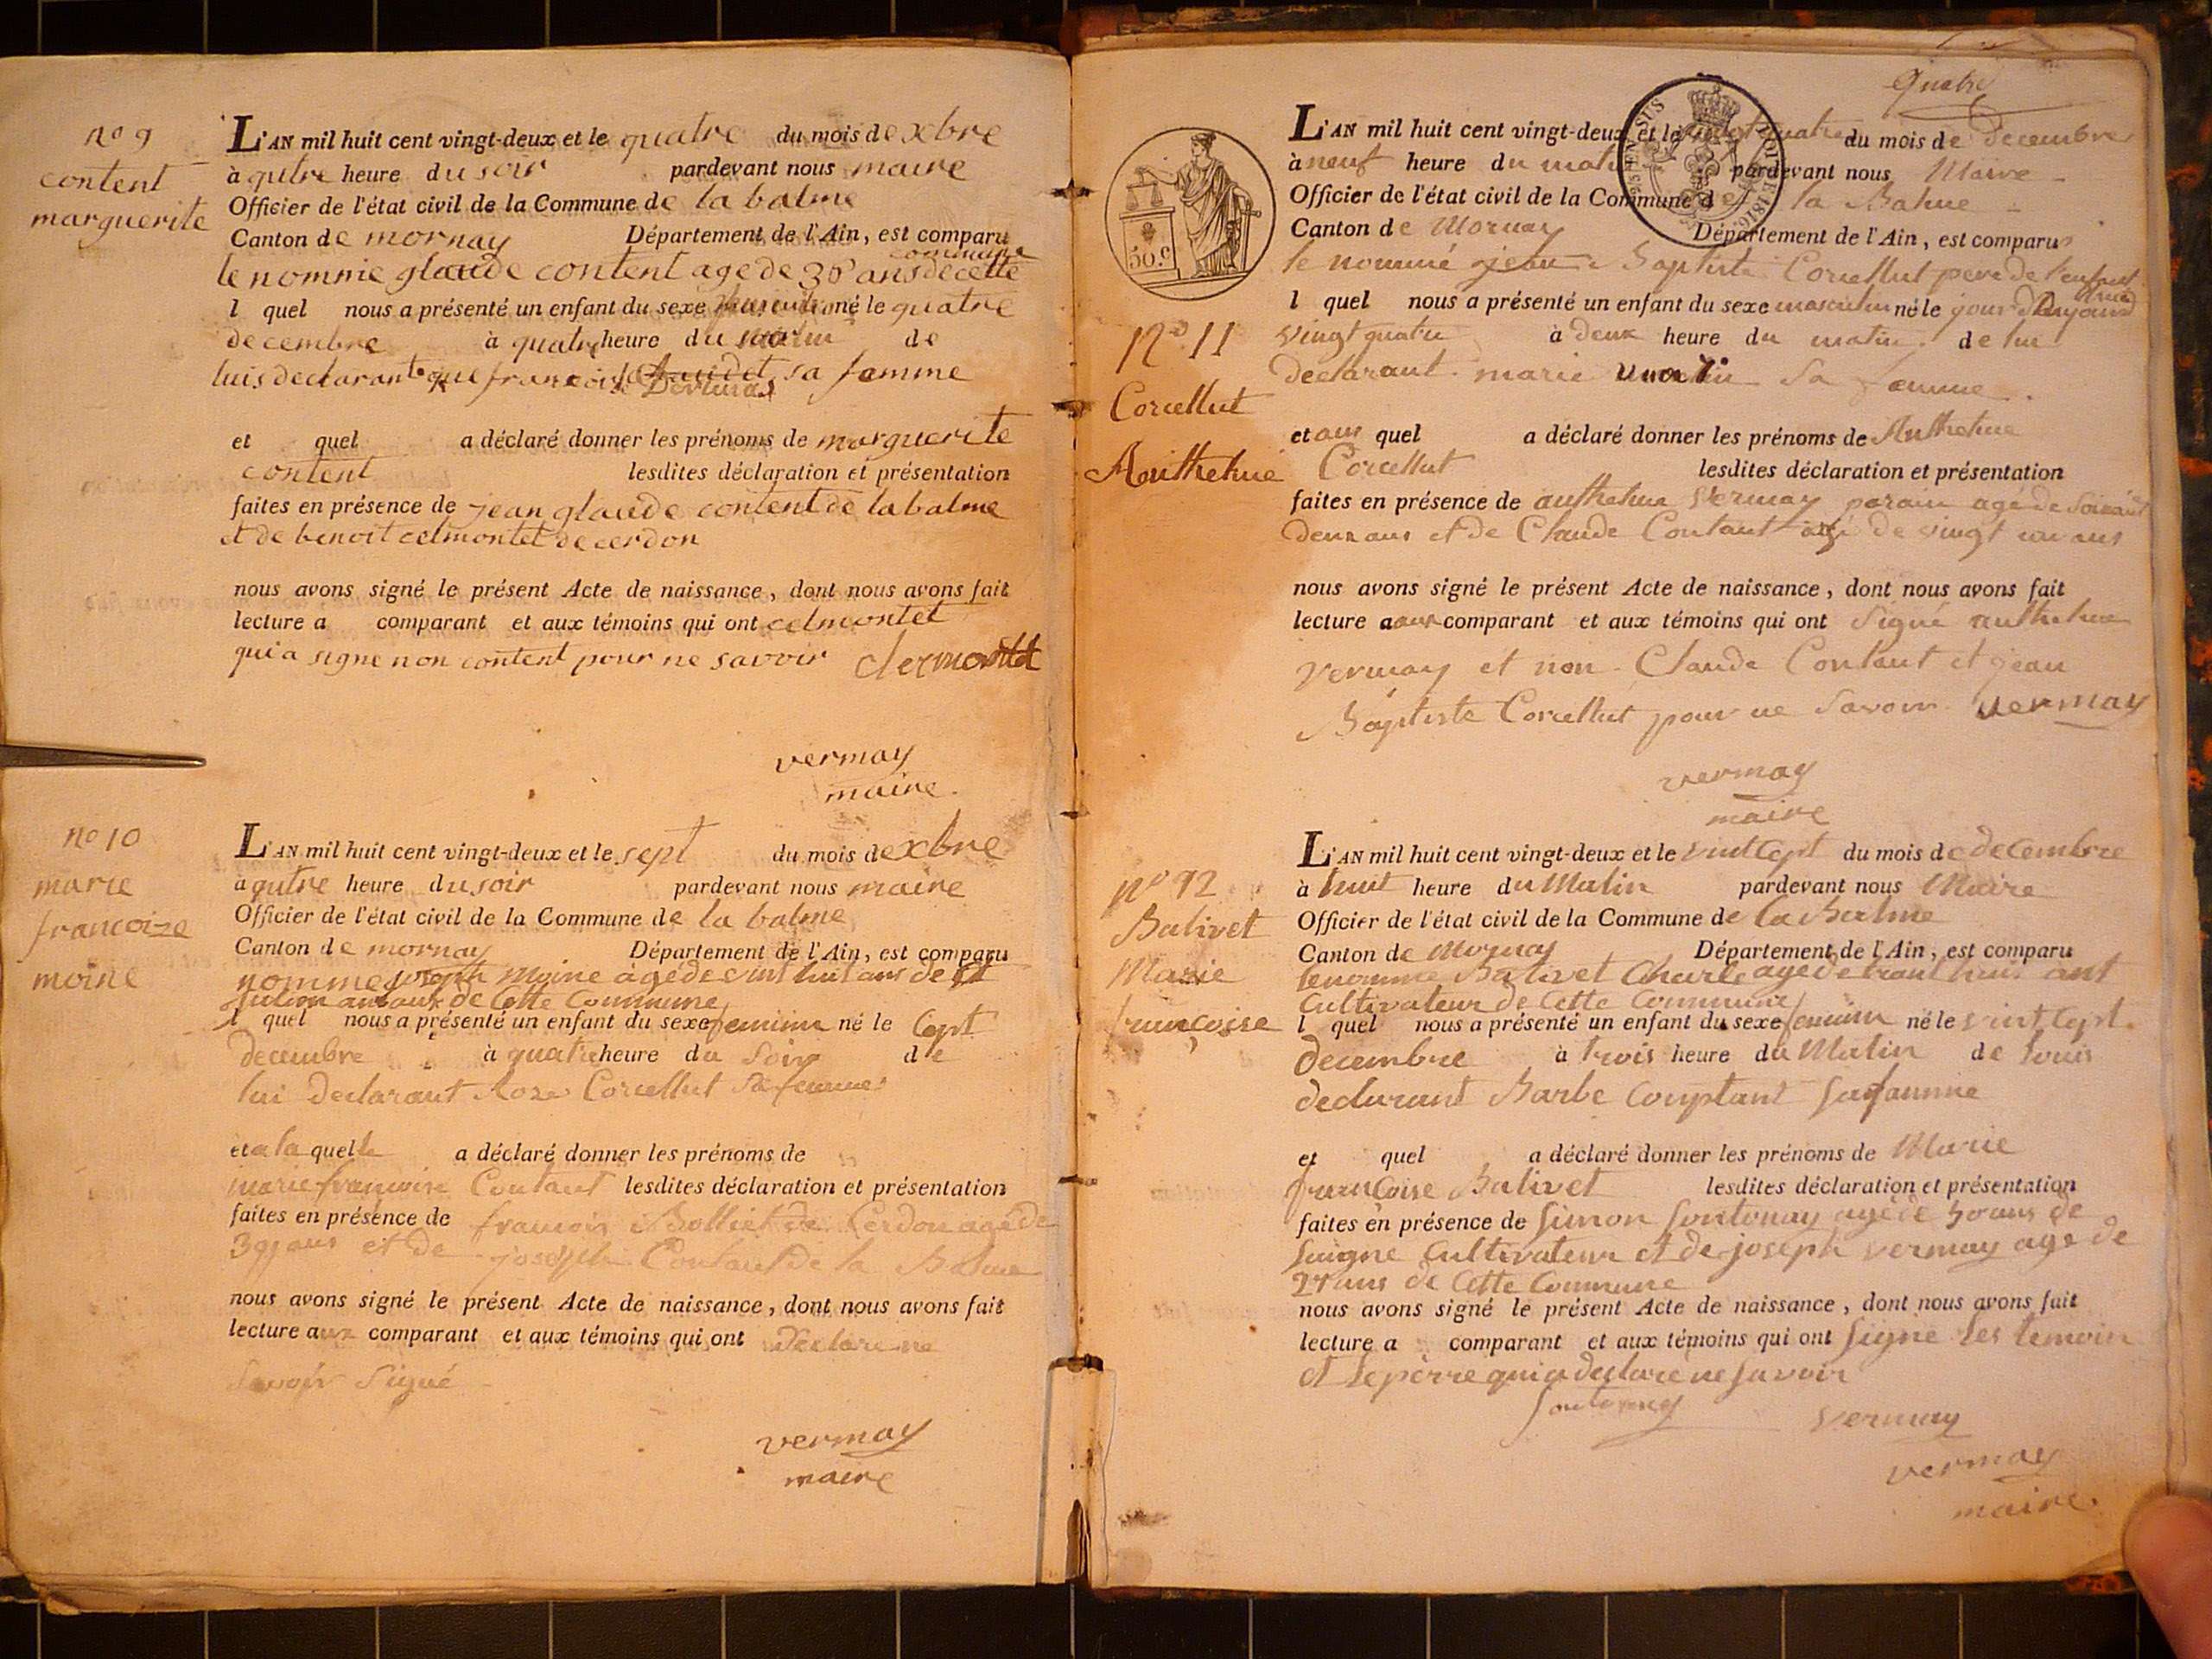 nº 9
content
marguerite
L'AN mil huit cent vingt-deux et le quatre du mois de xbre
à qutre heure du soir pardevant nous maire
Officier de l'état civil de la Commune de la balme
Canton de mornay Département de l'Ain, est comparu
commune
le nommé glaude content age de 38 ans de cette
l quel nous a présenté un enfant du sexe né le quatre
decembre à quatre heure du matin de
luis declarant que francoise sa famme
et quel a déclaré donner les prénoms de marguerite
content lesdites déclaration et présentation
faites en présence de jean glaude content de la balme
et de benoit celmontet de cerdon
nous avons signé le présent Acte de naissance, dont nous avons fait
lecture a comparant et aux témoins qui ont celmontet
qui a signe non content pour ne savoir
vermay
maire.
nº 10
marie
francoize
moine
L'AN mil huit cent vingt-deux et le sept du mois de xbre
à qutre heure du soir pardevant nous maire
Officier de l'état civil de la Commune de la balme
Canton de mornay Département de l'Ain, est comparu
nomme joseph moine àgé de vint huit ans de
de Cette Commune
l quel nous a présenté un enfant du sexe feminin né le Cept
decembre à quatre heure du Soir de
lui declarant Roze Corcellut Sa femme
et a la quelle a déclaré donner les prénoms de
marie francoise Contant lesdites déclaration et présentation
faites en présence de francois Bolliet de Cerdon agé de
39 ans et de joseph Contant de la Balme
nous avons signé le présent Acte de naissance, dont nous avons fait
lecture aux comparant et aux témoins qui ont declare ne
Savoir Signé
vermay
maire
Quatre
50.C
L'AN mil huit cent vingt-deux et le vingt quatre du mois de Decembre
à neuf heure du matin pardevant nous Maire
Officier de l'état civil de la Commune de la Balme
Canton de Mornay Département de l'Ain, est comparu
le nommé jean Baptiste Corcellut pere de l'enfant
l quel nous a présenté un enfant du sexe masculin né le jour d'aujourd
vingt quatre à deux heure du matin de lui
declarant marie sa femme
Nº 11
Corcellut
Anthelme
et aus quel a déclaré donner les prénoms de Anthelme
Corcellut lesdites déclaration et présentation
faites en présence de anthelme Vermay parain agé de Soixante
deux ans et de Claude Contant agé de vingt un ans
nous avons signé le présent Acte de naissance, dont nous avons fait
lecture aux comparant et aux témoins qui ont Signé anthelme
Vermay et non Claude Contant et jean
Baptiste Corcellut pour ne Savoir vermay
vermay
maire
nº 92
Balivet
Marie
françoise
L'AN mil huit cent vingt-deux et le vint Cept du mois de deCembre
à huit heure du Matin pardevant nous Maire
Officier de l'état civil de la Commune de la Balme
Canton de Mornay Département de l'Ain, est comparu
lenomme Balivet Charle agé de trant huit ant
Cultivateur de Cette Commune
l quel nous a présenté un enfant du sexe feminin né le vint Cept
decembre à trois heure du Matin de louis
declarant Barbe Comptant Safamme
et quel a déclaré donner les prénoms de Marie
françoise Balivet lesdites déclaration et présentation
faites en présence de Simon Sontonay agé de 50 ans de
Cultivateur et de joseph vermay age de
27 ans de Cette Commune
nous avons signé le présent Acte de naissance, dont nous avons fait
lecture a comparant et aux témoins qui ont Signe les temoin
et le pèrre qui a declaré ne Savoir
Sontonay vermay
vermay
maire.